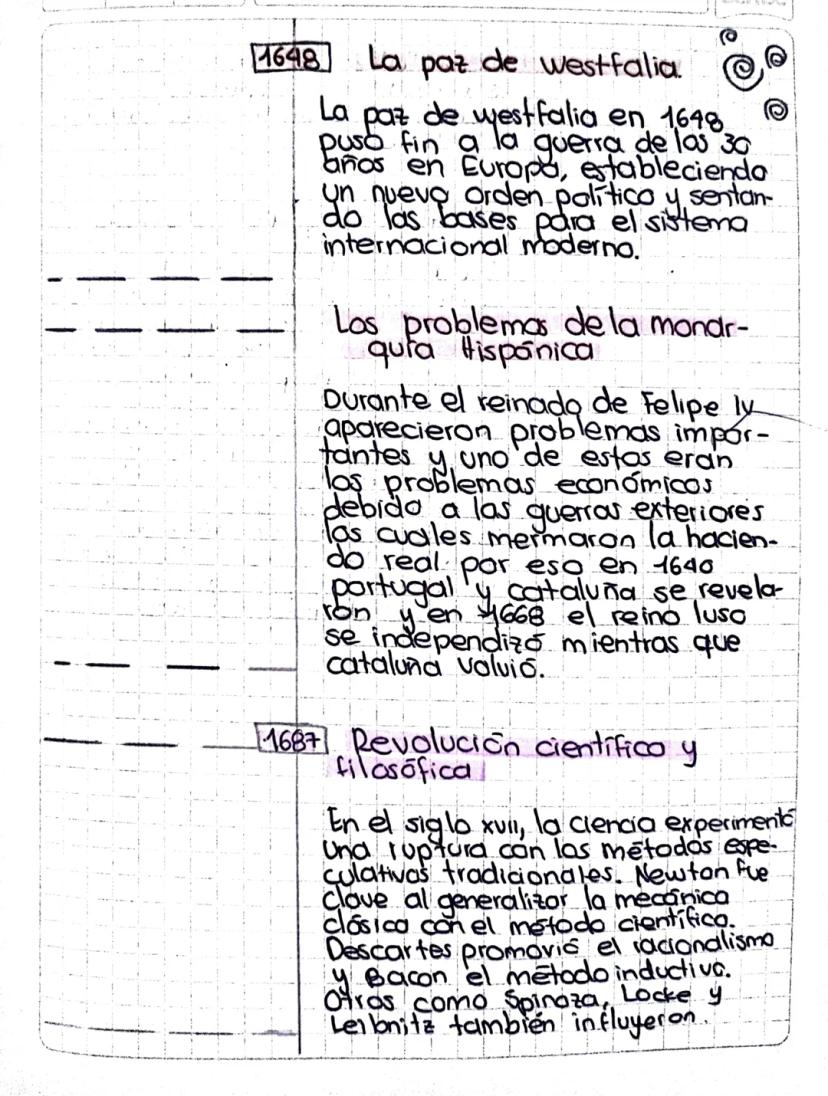 1648 La paz de westfalia.
La paz de westfalia en 1648
puso fin a la guerra de los 30
años en Europa, estableciendo
un nuevo orden político y sentan-
do las bases para el sistema
internacional moderno.
Los problemas de la monar-
quía Hispánica
Durante el reinado de Felipe IV
aparecieron problemas impor-
tantes y uno de estos eran
los problemas económicos
debido a las guerras exteriores
las cuales mermaron la hacien-
do real por eso en 1640
portugal y cataluña se revela-
ron y en 1668 el reino luso
se independizó mientras que
cataluña volvió.
1687 Revolución científico y
filosófica
En el siglo XVII, la ciencia experimentó
una ruptura con los métodos espe-
culativos tradicionales. Newton fue
clave al generalizar la mecánica
clásica con el método científico.
Descartes promovió el racionalismo
y Bacon el método inductivo.
Otros como Spinoza, Locke y
Leibnitz también influyeron.